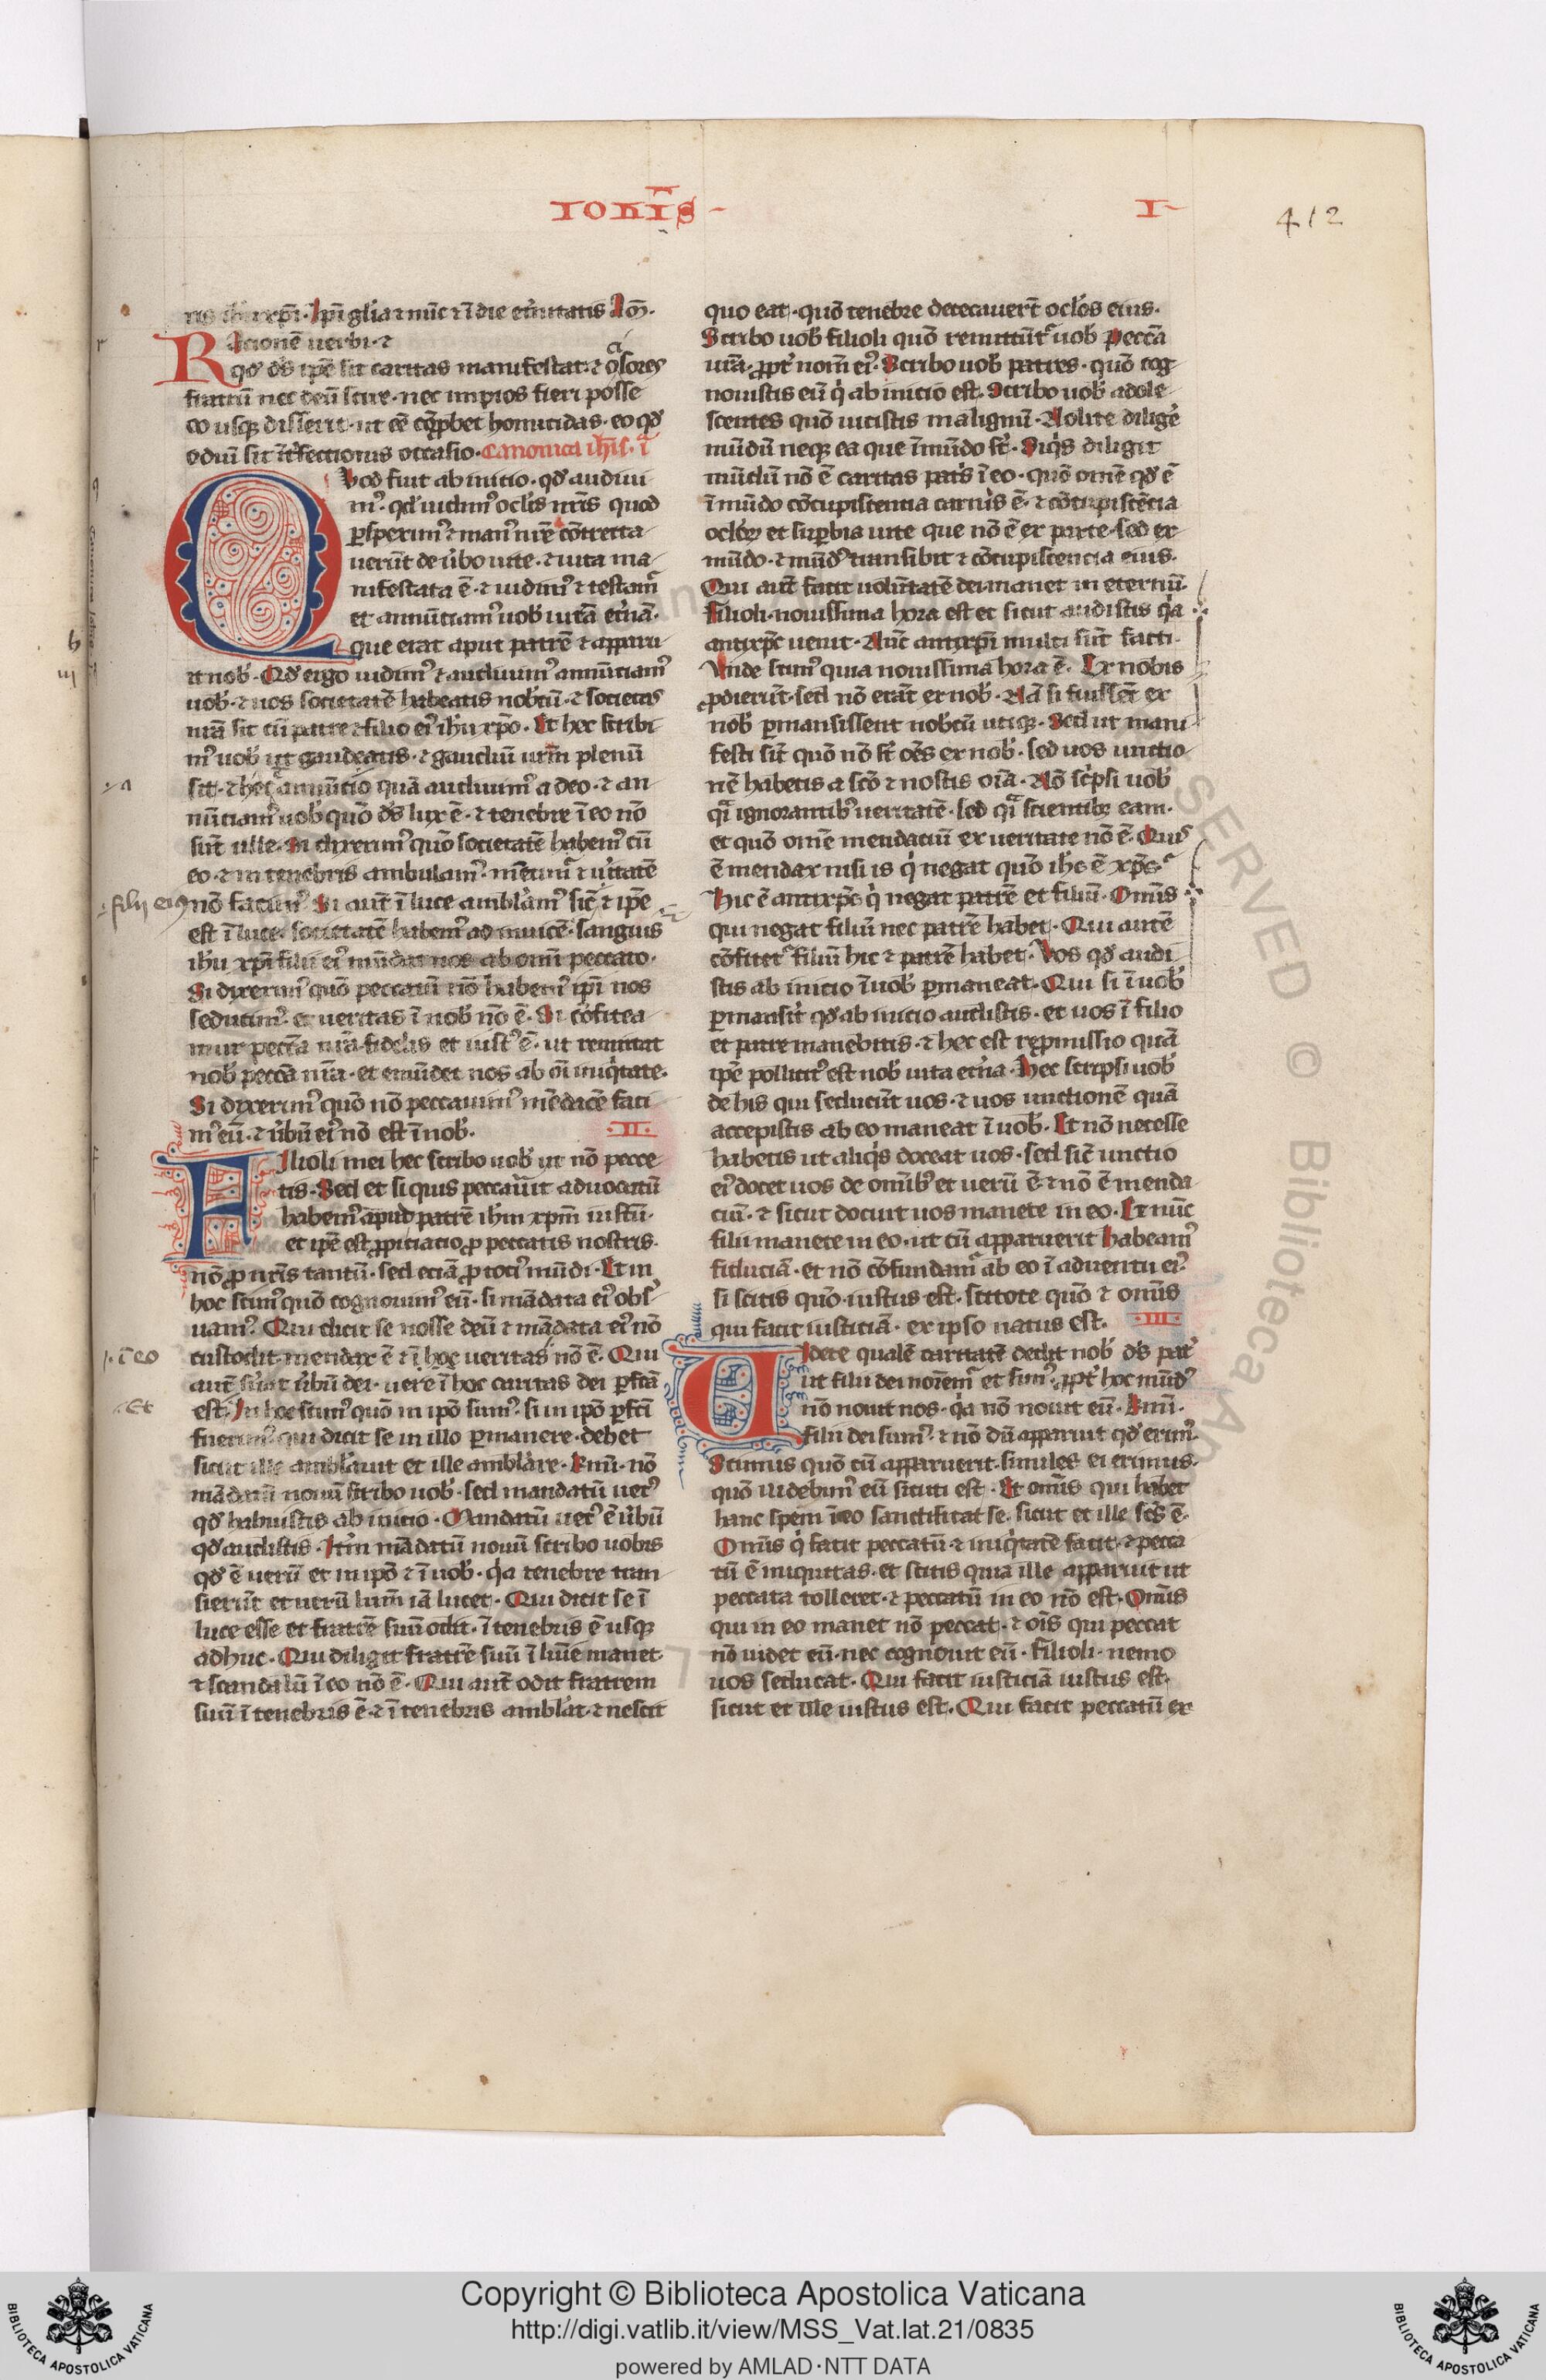 IOHĪS
I
412
ihu xp̄i. Ip̄i gl̓ia ⁊ nūc ⁊ ī die et̓nitatis Am̄.
Rationē uerbi. ⁊
qd̓ ds̄ ip̄e sit caritas manifestat. ⁊ ꝯsores
fratrū nec deū scire. nec impios fieri posse
eo usqꝫ disserit. ut eē ꝯp̄bet homicidas. eo qd̓
odiū sit īt̓fectionis occasio. Canonica ih̄is. ī
Quod fuit ab inicio. qd̓ audiui
m᷒. qd̓ uidim᷒ oclis nr̄is quod
ꝑspexim᷒ ⁊ man᷒ nr̄e cōtrecta
uerūt de u̓bo uite. ⁊ uita ma
nifestata ē. ⁊ uidim᷒ ⁊ testam᷑
et annūciam᷒ uob̓ uitā et̓nā.
que erat aput patrē ⁊ apparu
it nob̓. Qd̓ ergo uidim᷒ ⁊ audiuim᷒ annūciam᷒
uob̓. ⁊ uos societatē habeatis nob̓cū. ⁊ societas
nr̄a sit cū patre ⁊ filio ei᷒ ih̄u xp̄o. Et hec scribi
m᷒ uob̓ ut gaudeatis. ⁊ gaudiū ur̄m plenū
sit. ⁊ hec annūcio quā audiuim᷒ a deo. ⁊ an
nūciam᷒ uob̓ quō ds̄ lux ē. ⁊ tenebre ī eo nō
sūt ulle. Si dixerim᷒ quō societatē habem᷒ cū
eo. ⁊ in tenebris ambulam᷒. mētim᷑ ⁊ u̓itatē
filij ei᷒ nō facim᷒. Si aūt ī luce ambl̓am᷒ sic̄ ⁊ ip̄e
est ī luce. societatē habem᷒ ad inuicē. sanguis
ih̄u xp̄i filii ei᷒ mūdat nos ab omi peccato.
Si dixerim᷒ quō peccatū nō habem᷒ ip̄i nos
seducim᷒. et ueritas ī nob̓ nō ē. Si cōfitea
mur peccā nr̄a. fidelis et iust᷒ ē. ut remittat
nob̓ peccā nr̄a. et emūdet nos ab oī iniq̓tate.
Si dixerim᷒ quō nō peccauim᷒ mēdacē faci
m᷒ eū. ⁊ u̓bū ei᷒ nō est ī nob̓. .II.
Filioli mei hec scribo uob̓ ut nō pecce
tis. Sed et si quis peccau̓it aduocatū
habem᷒ apud patrē ih̄m xp̄m iustū.
et ip̄e est ꝓpiciacio ꝓ peccatis nostris.
nō ꝓ nr̄is tantū. sed eciā ꝓ toci᷒ mūdi. Et in
hoc scim᷒ quō cognouim᷒ eū. si mādata ei᷒ obs̓
uam᷒. Qui dicit se nosse deū ⁊ mādata ei᷒ nō
ī eo custodit. mendax ē ⁊ ī hoc ueritas nō ē. Qui
aūt s̓uat u̓bū dei. uere ī hoc caritas dei ꝑfc̄ā
Et est. In hoc scim᷒ quō in ip̄o sum᷒. si in ip̄o ꝑfc̄i
fuerim᷒. qui dicit se in illo ꝑmanere. debet
sicut ille ambl̓auit et ille ambl̓are. Kmī. nō
mādatū nouū scribo uob̓. sed mandatū uet᷒
qd̓ habuistis ab inicio. Mandatū uet᷒ ē u̓bū
qd̓ audistis. It̄m mādatū nouū scribo uobis
qd̓ ē uerū et in ip̄o ⁊ ī uob̓. q̓a tenebre tran
sierūt et uerū lum̄ iā lucet. Qui dicit se ī
luce esse et fratrē suū odit. ī tenebris ē usqꝫ
adhuc. Qui diligit fratrē suū ī lum̄e manet
⁊ scandalū ī eo nō ē. Qui aūt odit fratrem
suū ī tenebris ē. ⁊ ī tenebris ambl̓at. ⁊ nescit
quo eat. quō tenebre obcecauer̄t oclōs eius.
Scribo uob̓ filioli quō remittūt᷑ uob̓ peccā
ur̄a. ꝓpt̓ nom̄ ei᷒. Scribo uob̓ patres. quō cog
nouistis eū q̓ ab inicio est. Scribo uob̓ adole
scentes quō uicistis malignū. Nolite dilige
mūdū neqꝫ ea que ī mūdo st̄. Siq̓s diligit
mūdū nō ē caritas pat̓s ī eo. quō om̄e qd̓ ē
ī mūdo cōcupiscentia carnis ē. ⁊ cōcupiscēcia
oclōꝝ et suꝑbia uite que nō ē ex patre. sed ex
mūdo. ⁊ mūd᷒ transibit ⁊ cōcupiscencia eius.
Qui aūt facit uolūtatē dei manet in eternū.
Filioli. nouissima hora est et sicut audistis q̓a
antixp̄c uenit. Nūc antixp̄i multi sūt facti.
Vnde scim᷒ quia nouissima hora ē. Ex nobis
ꝓdierūt. sed nō erāt ex nob̓. Nā si fuissēt ex
nob̓ ꝑmansissent nob̓cū utiqꝫ. Sed ut mani
festi sūt quō nō st̄ oēs ex nob̓. sed uos unctio
nē habetis a scō ⁊ nostis oīa. Nō sc̓psi uob̓
q̓i ignorantib᷒ ueritatē. sed q̓i scientibꝫ eam.
et quō om̄e mendaciū ex ueritate nō ē. Quis
ē mendax nisi is q̓ negat quō ih̄c ē xp̄c?
Hic ē antixp̄c q̓ negat patrē et filiū. Omīs
qui negat filiū nec patrē habet. Qui autē
cōfitet᷑ filiū hic ⁊ patrē habet. Vos qd̓ audi
stis ab inicio ī uob̓ ꝑmaneat. Qui si ī uob̓
ꝑmansit̓ qd̓ ab inicio audistis. et uos ī filio
et patre manebitis. ⁊ hec est repmissio quā
ip̄e pollicit᷒ est nob̓ uitā et̓nā. Hec scripsi uob̓
de his qui seducūt uos. ⁊ uos unctionē quā
accepistis ab eo maneat ī uob̓. Et nō necesse
habetis ut aliq̓s doceat uos. sed sic̄ unctio
ei᷒ docet uos de omib᷒ et uerū ē. ⁊ nō ē menda
ciū. ⁊ sicut docuit uos manete in eo. Et nūc
filii manete in eo. ut cū apparuerit habeam᷒
fiduciā. et nō cōfundam᷑ ab eo ī aduentu ei᷒.
si scitis quō iustus est. scitote quō ⁊ omīs
qui facit iusticiā. ex ipso natus est. .III.
Uidete qualē caritatē dedit nob̓ ds̄ pat̓
ut filii dei norem̄ et sim᷒. ꝓpt̓ hoc mūd᷒
nō nouit nos. q̓a nō nouit eū. Kmī.
filii dei sum᷒. ⁊ nō dū apparuit qd̓ erim᷒.
Scimus quō cū apparuerit. similes ei erimus.
quō uidebim᷒ eū sicuti est. Et omīs qui habet
hanc spem ī eo sanctificat se. sicut et ille scs̄ ē.
Omīs q̓ facit peccatū. ⁊ iniq̓tatē facit. ⁊ pecca
tū ē iniquitas. et scitis quia ille apparuit ut
peccata tolleret. ⁊ peccatū in eo nō est. Omīs
qui in eo manet nō peccat. ⁊ oīs qui peccat
nō uidet eū. nec cognouit eū. Filioli. nemo
uos seducat. Qui facit iusticiā iustus est.
sicut et ille iustus est. Qui facit peccatū ex
Copyright © Biblioteca Apostolica Vaticana
http://digi.vatlib.it/view/MSS_Vat.lat.21/0835
powered by AMLAD·NTT DATA
BIBLIOTECA APOSTOLICA VATICANA
BIBLIOTECA APOSTOLICA VATICANA